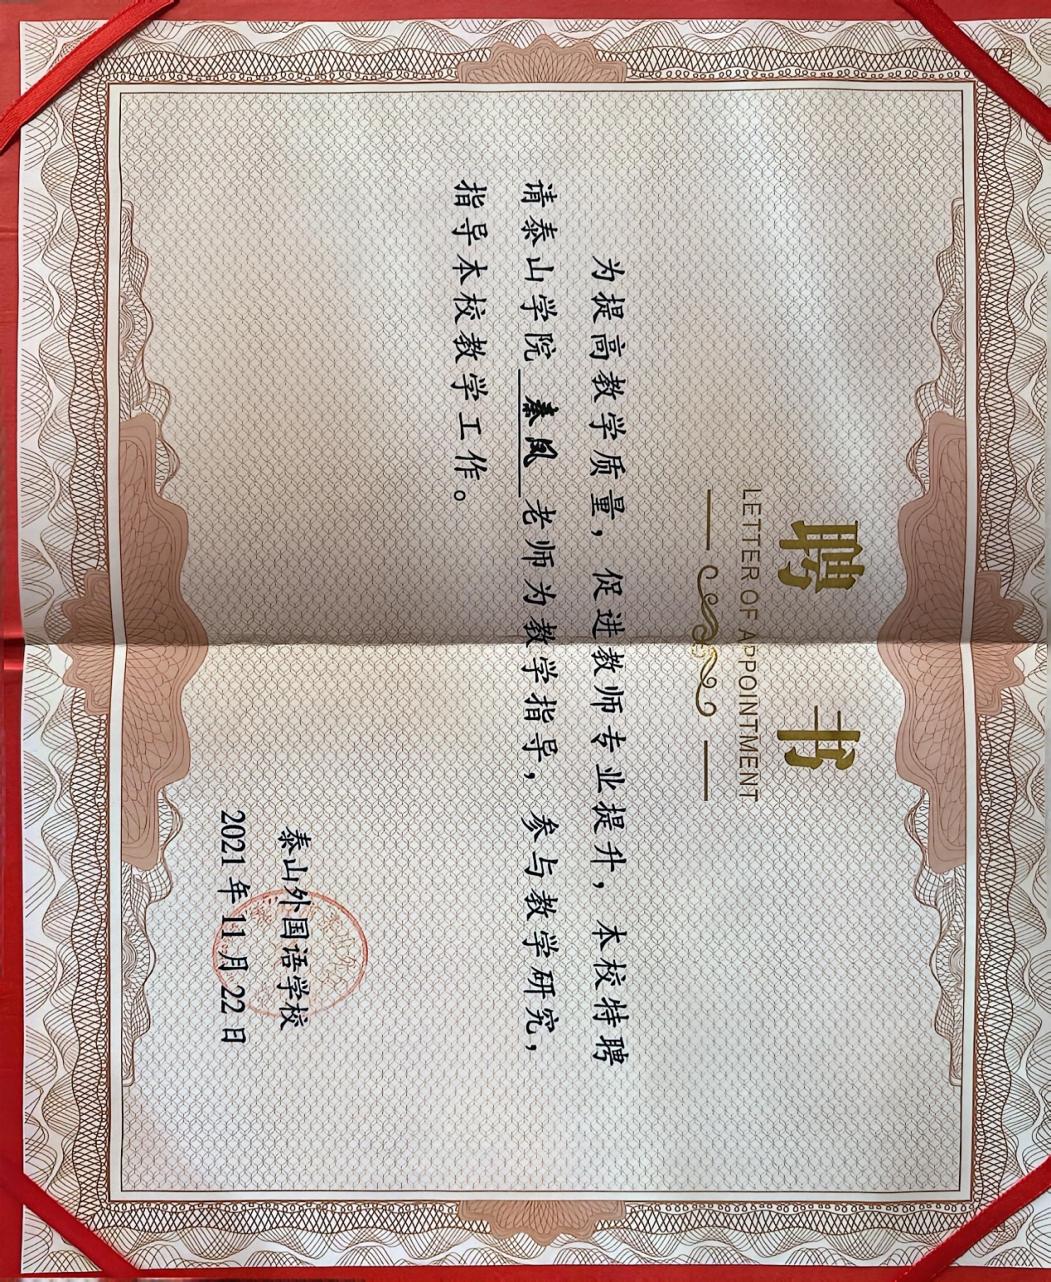 聘书
LETTER OF APPOINTMENT
为提高教学质量，促进教师专业提升，本校特聘
请泰山学院 秦凤 老师为教学指导，参与教学研究，
指导本校教学工作。
泰山外国语学校
2021年11月22日